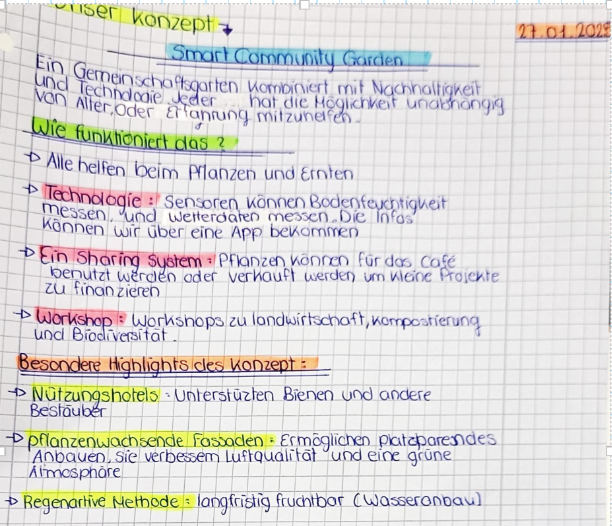 Unser Konzept
27.01.202
Smart Community Garden
Ein Gemeinschaftsgarten kombiniert mit Nachhaltigkeit
und Technologie Jeder hat die Möglichkeit unabhängig
von Alter, oder Erfahrung mitzuhelfen.
Wie funktioniert das?
→ Alle helfen beim Pflanzen und Ernten
→ Technologie: Sensoren können Bodenfeuchtigkeit
messen, und Wetterdaten messen. Die Infos
können wir über eine App bekommen
→ Ein Sharing System: Pflanzen können für das Café
benutzt werden oder verkauft werden um kleine Projekte
zu finanzieren
→ Workshop: Workshops zu landwirtschaft, kompostierung
und Biodiversität.
Besondere Highlights des Konzept:
→ Nützungshotels: Unterstüzten Bienen und andere
Bestäuber
→ pflanzenwachsende Fassaden: Ermöglichen platzparendes
Anbauen, sie verbessern Luftqualität und eine grüne
Atmosphäre
→ Regenartive Methode: langfristig fruchtbar (Wasseranbau)